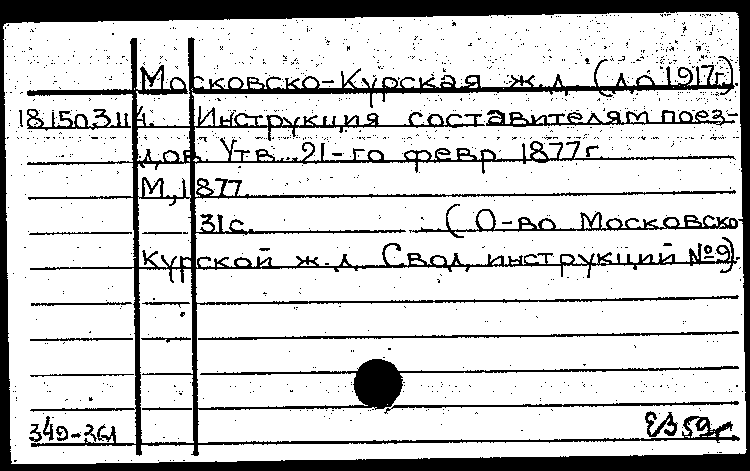 Московско-Курская ж.д. (до 1917г).
18.150.3.114. Инструкция составителям поез-
дов. Утв. 21-го февр 1877г.
М., 1877.
31с. (О-во Московско-
Курской ж.д. Свод инструкций №9).
349-361